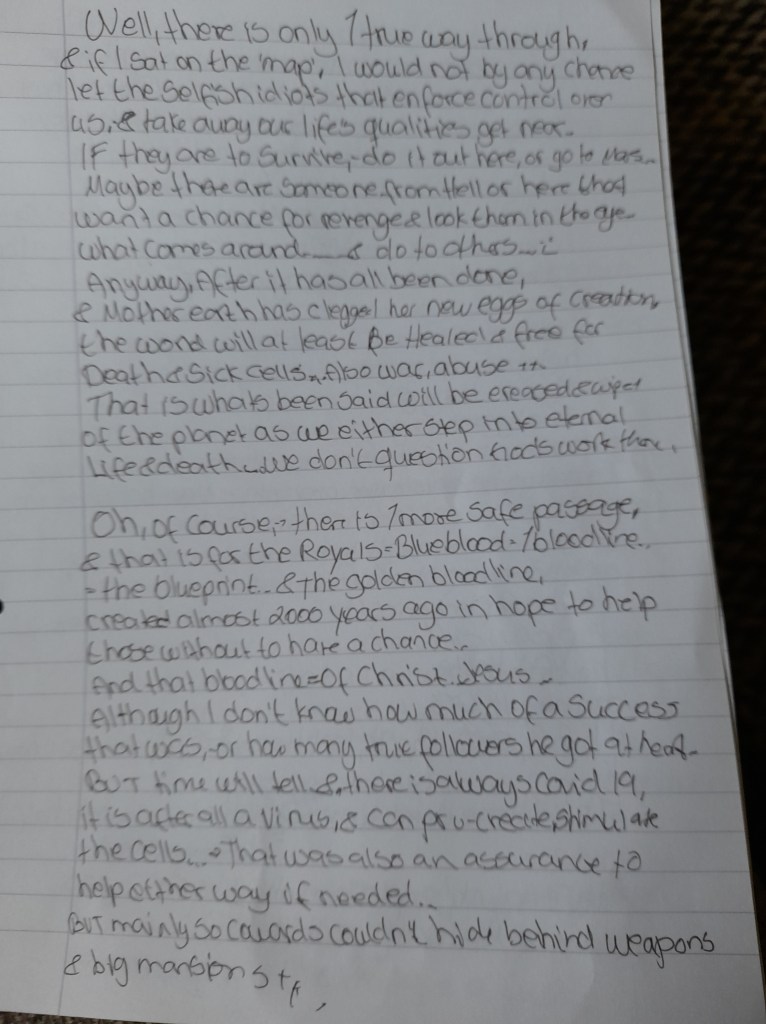 Well, there is only 1 true way through,
& if I sat on the 'map', I would not by any chance
let the selfish idiots that enforce control over
us, & take away our life's qualities get near.
IF they are to survive, - do it out here, or go to Mars..
Maybe there are someone from Hell or here that
want a chance for revenge & look them in the eye
what comes around & do to others
Anyway, After it has all been done,
& Mother earth has her new eggs of creation,
the world will at least Be Healed & free for
Death & Sick cells. Also war, abuse
That is whats been said will be ereased &
of the planet as we either step into eternal
Life & death we don't question Gods work

Oh, of course, - there is 1 more safe passage,
& that is for the Royals = Blueblood - 1 bloodline..
- the blueprint.. & the golden bloodline,
created almost 2000 years ago in hope to help
those without to have a chance..
And that bloodline = Of Christ. Jesus
Although I don't know how much of a success
that was, - or how many true followers he got at heart -
BUT time will tell & there is always Covid 19,
it is after all a virus, & can pro-create, stimulate
the cells... That was also an assurance to
help either way if needed...
BUT mainly so cowards couldn't hide behind weapons
& big mansions